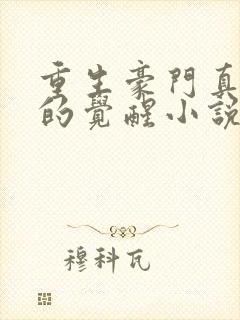 重生豪門真
的覺醒小說
穆科瓦